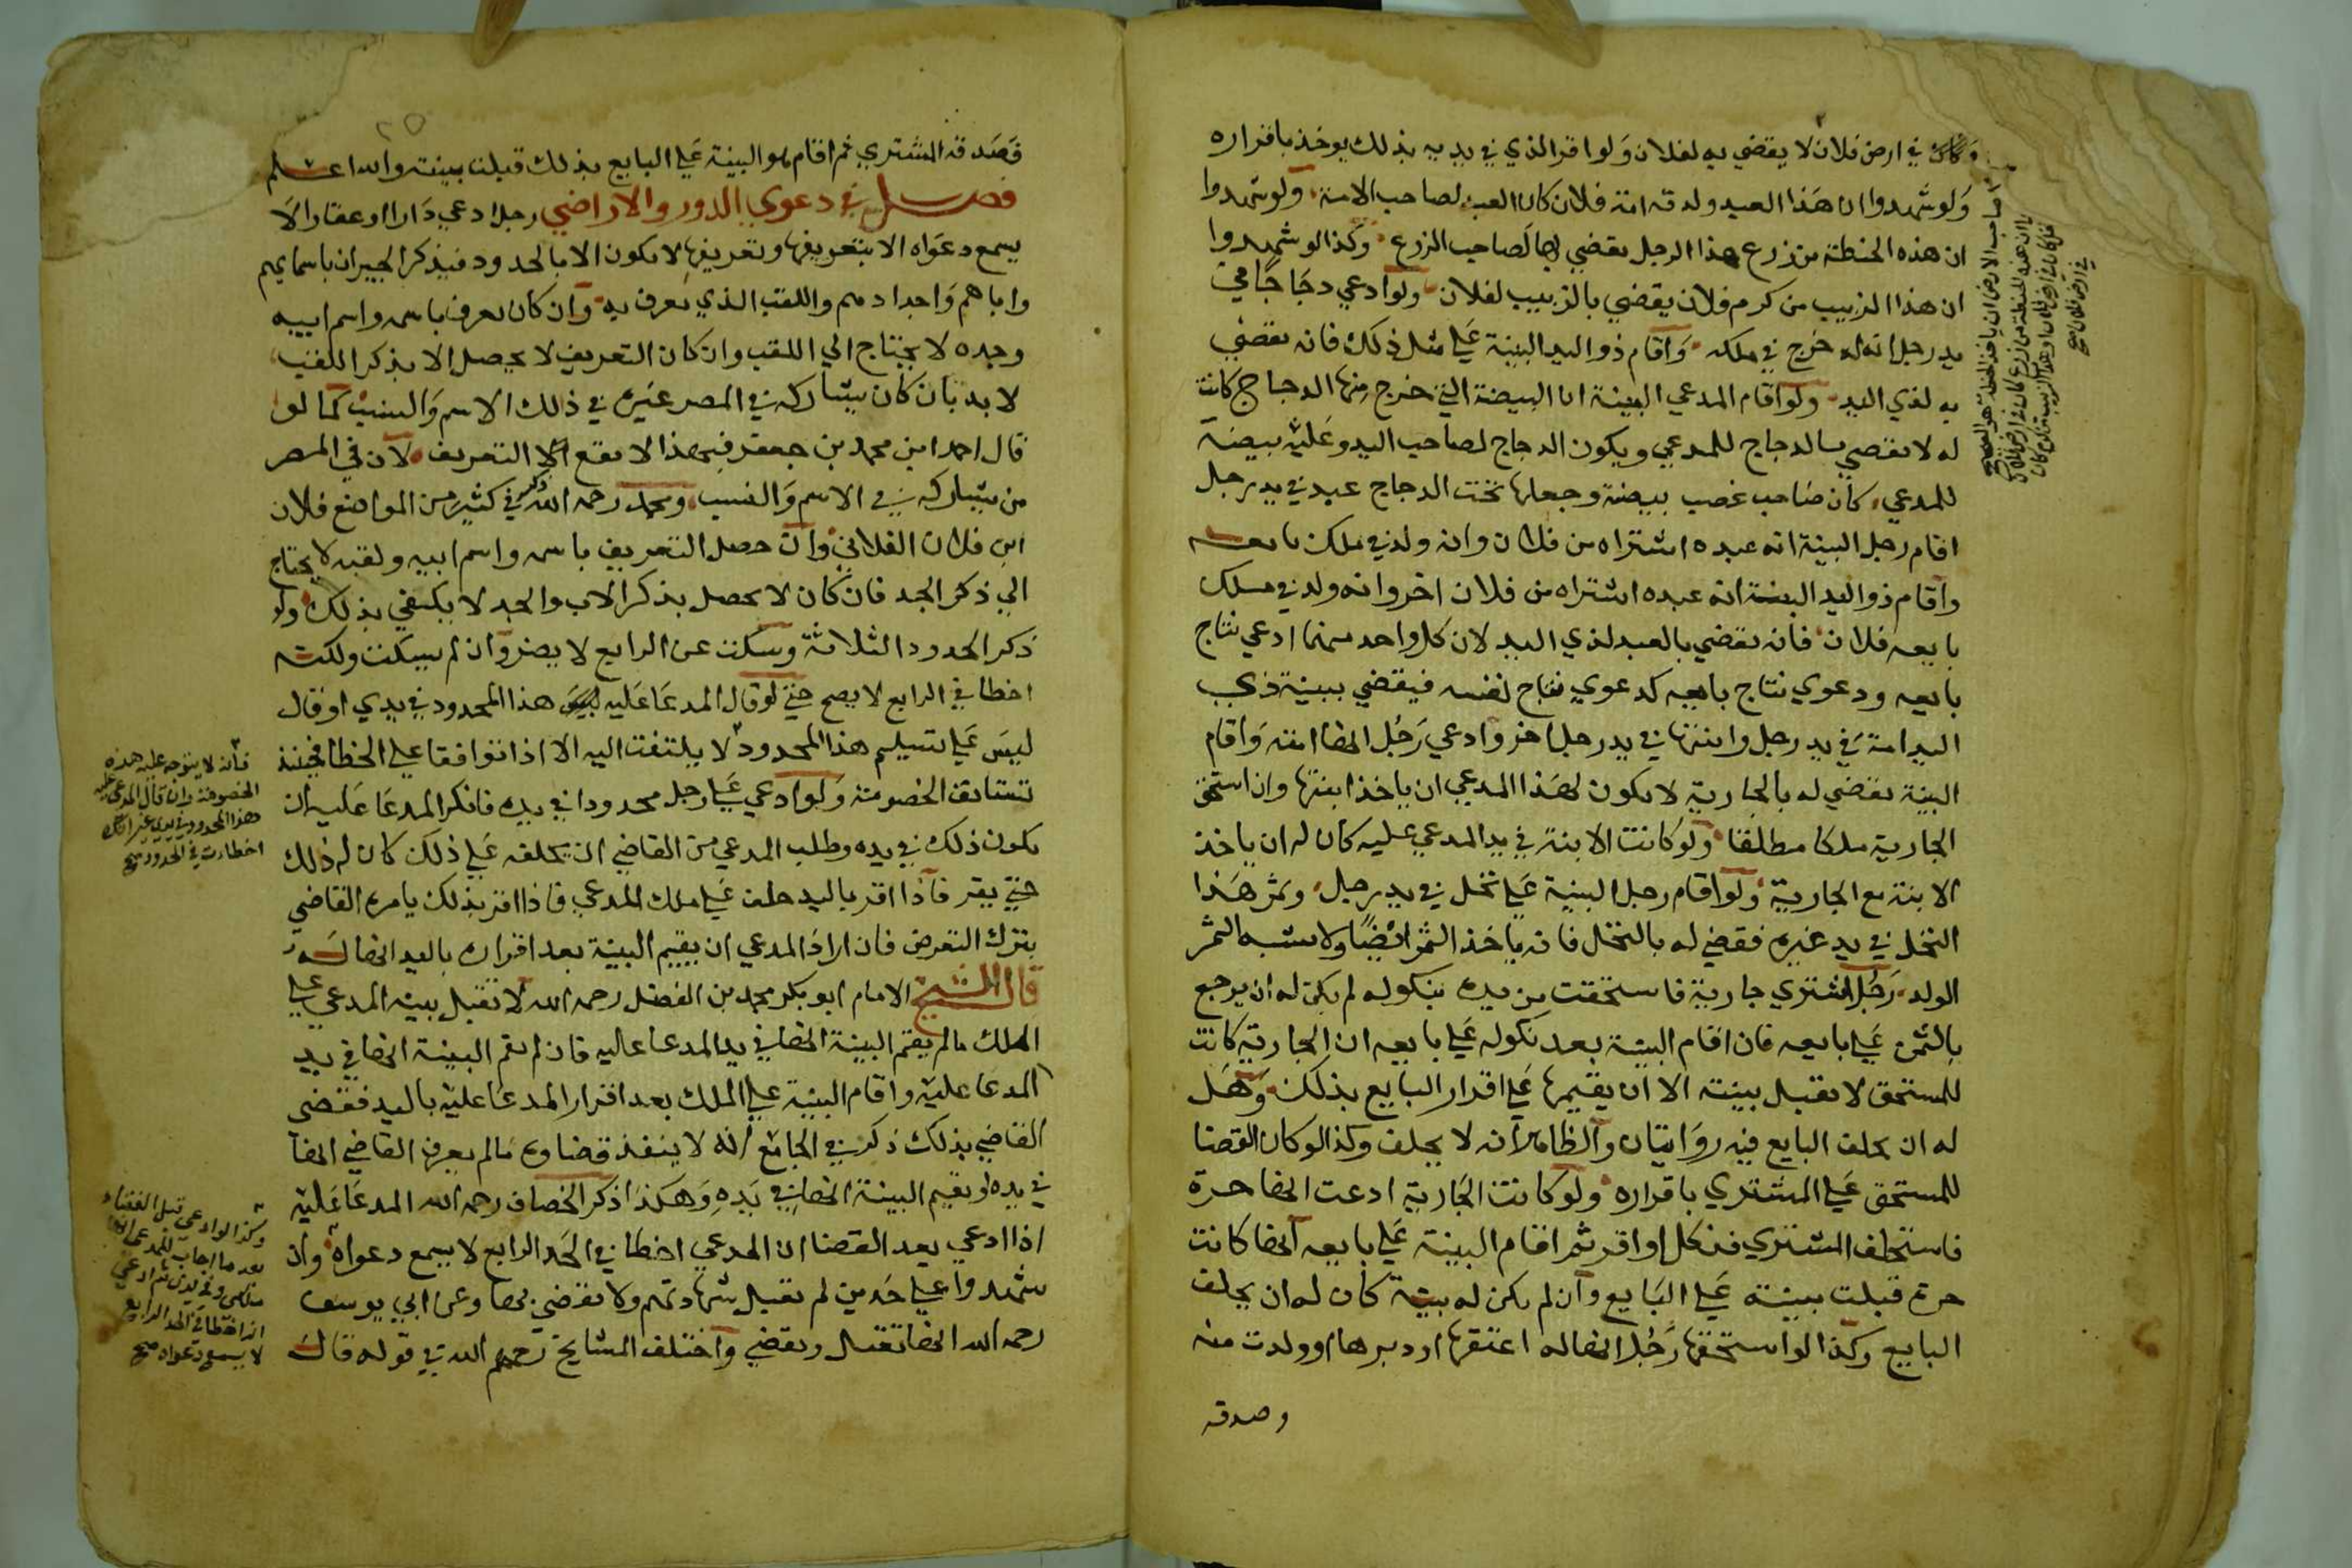 وكان في ارض فلان لا يقضي به لفلان ولو اقر الذي في يديه بذلك يوخذ باقراره
ولو شهدوا ان هذا العبد ولدته امة فلان كان العبد لصاحب الامة ولو شهدوا
ان هذه الحنطة من زرع هذا الرجل يقضي بها لصاحب الزرع وكذا لو شهدوا
ان هذا الزبيب من كرم فلان يقضي بالزبيب لفلان ولو ادعي دجاجا في
يد رجل انه له خرج في ملكه واقام ذو اليد البينة علي مثل ذلك فانه يقضي
به لذي اليد ولو اقام المدعي البينة ان البيضة التي خرج منها الدجاج كانت
له لا يقضي بالدجاج للمدعي ويكون الدجاج لصاحب اليد وعليه بيضة
للمدعي كان صاحب غصب بيضة وجعلها تحت الدجاج عبد في يد رجل
اقام رجل البينة انه عبده اشتراه من فلان وانه ولد في ملك بايعه
واقام ذو اليد البينة انه عبده اشتراه من فلان اخر وانه ولد في ملك
بايعه فلان فانه يقضي بالعبد لذي اليد لان كل واحد منهما ادعي نتاج
بايعه ودعوي نتاج بايعه كدعوي نتاج نفسه فيقضي ببينة ذي
اليد امة في يد رجل وابنتها في يد رجل اخر وادعي رجل انها امته واقام
البينة يقضي له بالجارية لا يكون لهذا المدعي ان ياخذ ابنتها وان استحق
الجارية ملكا مطلقا ولو كانت الابنة في يد المدعي عليه كان له ان ياخذ
الابنة مع الجارية ولو اقام رجل البينة علي نخل في يد رجل وثمر هذا
النخل في يد غيره فقضي له بالنخل فانه ياخذ الثمر ايضا ولا يشبه الثمر
الولد رجل اشتري جارية فاستحقت من يده بنكوله لم يكن له ان يرجع
بالثمن علي بايعه فان اقام البينة بعد نكوله علي بايعه ان الجارية كانت
للمستحق لا تقبل بينته الا ان يقيمها علي اقرار البايع بذلك وهل
له ان يحلف البايع فيه روايتان والظاهر انه لا يحلف وكذا لو كان القضا
للمستحق علي المشتري باقراره ولو كانت الجارية ادعت انها حرة
فاستحلف المشتري فنكل او اقر ثم اقام البينة علي بايعه انها كانت
حرة قبلت بينته علي البايع وان لم يكن له بينة كان له ان يحلف
البايع وكذا لو استحقها رجل انها له اعتقها او دبرها او ولدت منه
وصدقه
صاحب الارض ان ياخذ الحنطة هو الصحيح
ان هذه الحنطة من زرع كان في ارض فلان
في ارض فلان صح
٢٥
فصدقه المشتري ثم اقام هو البينة علي البايع بذلك قبلت بينته والله اعلم
فصل في دعوي الدور والاراضي رجل ادعي دارا او عقارا لا
يسمع دعواه الا بتعريفها وتعريفها لا يكون الا بالحدود فيذكر الجيران باسمايهم
واباهم واجدادهم واللقب الذي يعرف به وان كان يعرف باسمه واسم ابيه
وحده لا يحتاج الي اللقب وان كان التعريف لا يحصل الا بذكر اللقب
لا بد بان كان يشاركه في المصر غيره في ذلك الاسم والنسب كما لو
قال احمد ابن محمد بن جعفر فبهذا لا يقع التعريف لان في المصر
من يشاركه في الاسم والنسب ومحمد رحمه الله ذكر في كثير من المواضع فلان
ابن فلان الفلاني وان حصل التعريف باسمه واسم ابيه ولقبه لا يحتاج
الي ذكر الجد فان كان لا يحصل بذكر الاب والجد لا يكتفي بذلك ولو
ذكر الحدود الثلاثة وسكت عن الرابع لا يضر وان لم يسكت ولكنه
اخطا في الرابع لا يصح حتي لو قال المدعا عليه ليس هذا المحدود في يدي او قال
ليس علي تسليم هذا المحدود لا يلتفت اليه الا اذا توافقا علي الخطا فحينئذ
تستانف الخصومة ولو ادعي علي رجل محدودا في يده فانكر المدعا عليه ان
يكون ذلك في يده وطلب المدعي من القاضي ان يحلفه علي ذلك كان له ذلك
حتي يقر فاذا اقر باليد حلف علي ملك المدعي فاذا اقر بذلك يامره القاضي
بترك التعرض فان اراد المدعي ان يقيم البينة بعد اقراره باليد انها له
قال الشيخ الامام ابو بكر محمد بن الفضل رحمه الله لا تقبل بينة المدعي علي
الملك مالم يقم البينة انها في يد المدعا عليه فان لم يقم البينة انها في يد
المدعا عليه واقام البينة علي الملك بعد اقرار المدعا عليه باليد فقضي
القاضي بذلك ذكر في الجامع انه لا ينفذ قضاوه مالم يعرف القاضي انها
في يده او يقيم البينة انها في يده وهكذا ذكر الخصاف رحمه الله المدعا عليه
اذا ادعي بعد القضا ان المدعي اخطا في الحد الرابع لا يسمع دعواه وان
شهدوا علي حدين لم تقبل شهادتهم ولا يقضي بها وعن ابي يوسف
رحمه الله انها تقبل ويقضي واختلف المشايخ رحمهم الله في قوله قال
فانه لا يتوجه عليه هذه
الخصومة وان قال المدعي عليه
هذا المحدود في يدي غير انك
اخطات في الحدود صح
وكذا لو ادعي قبل القضاء
بعد ما اجاب المدعي انها
ملكي وفي يدي ثم ادعي
انه اخطا في الحد الرابع
لا يسمع دعواه صح